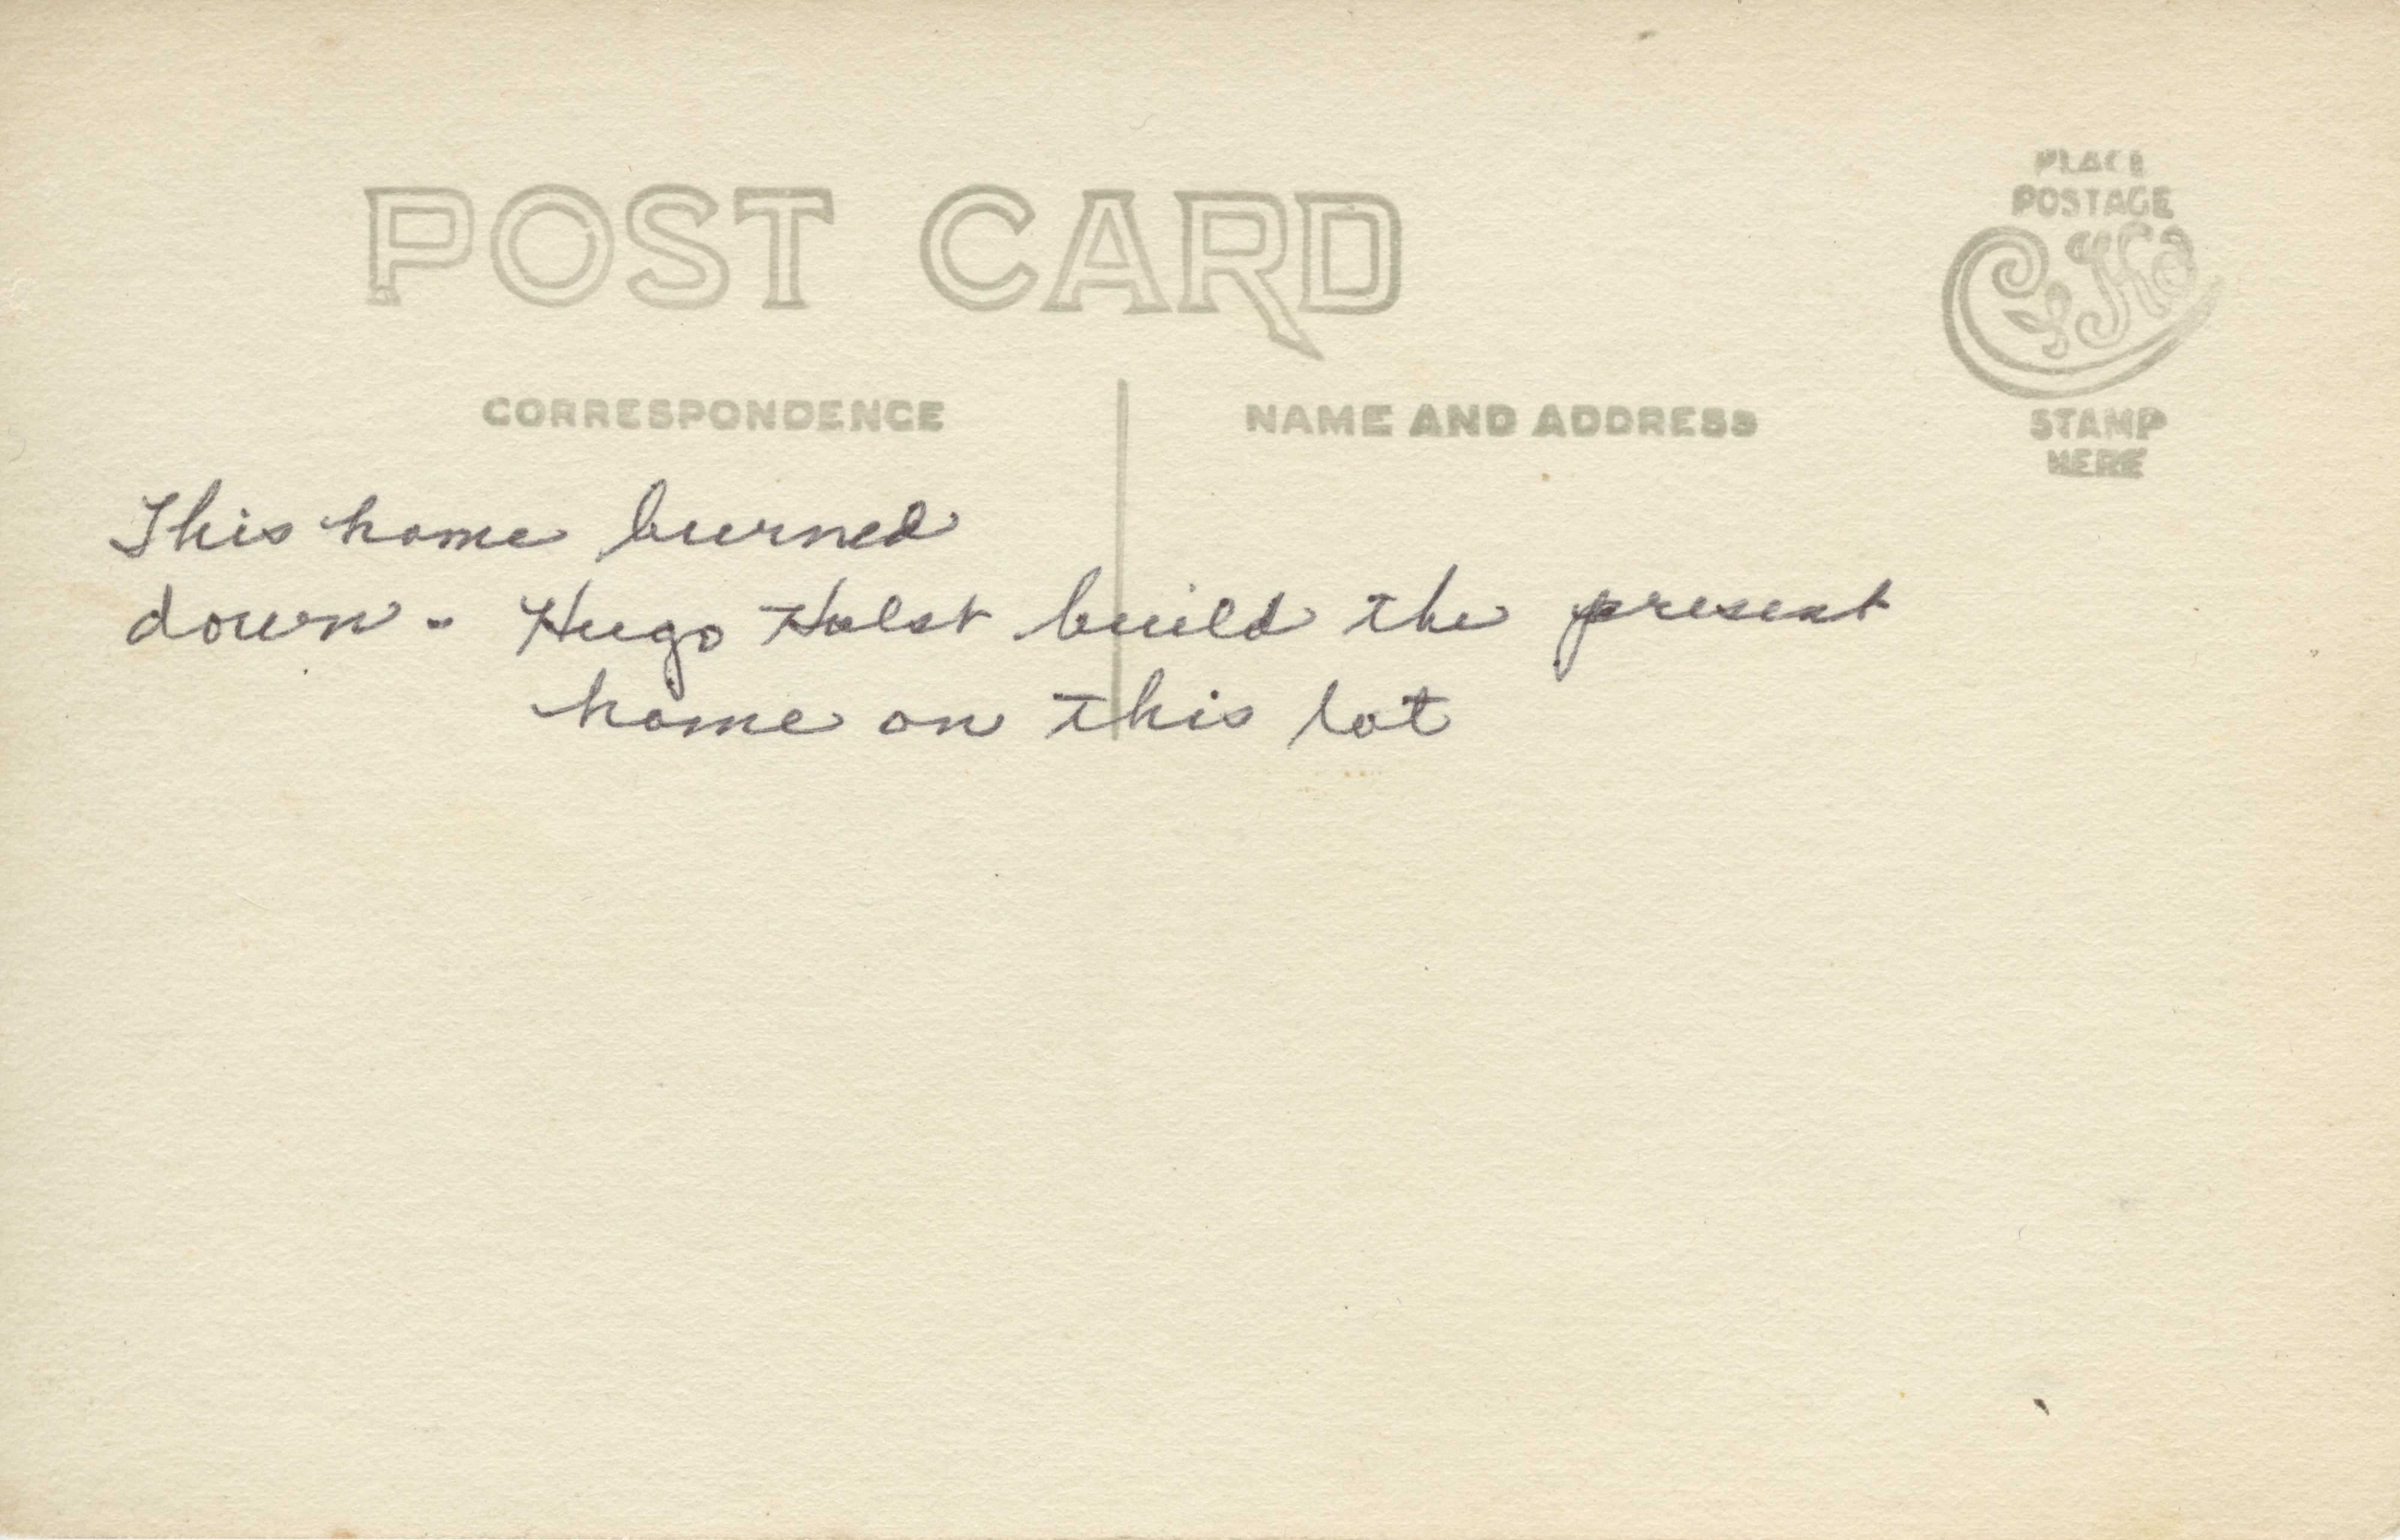 POST CARD
CORRESPONDENCE
NAME AND ADDRESS
PLACE
POSTAGE
CYKO
STAMP
HERE
This home burned
down - Hugo Holst build the present
home on this lot